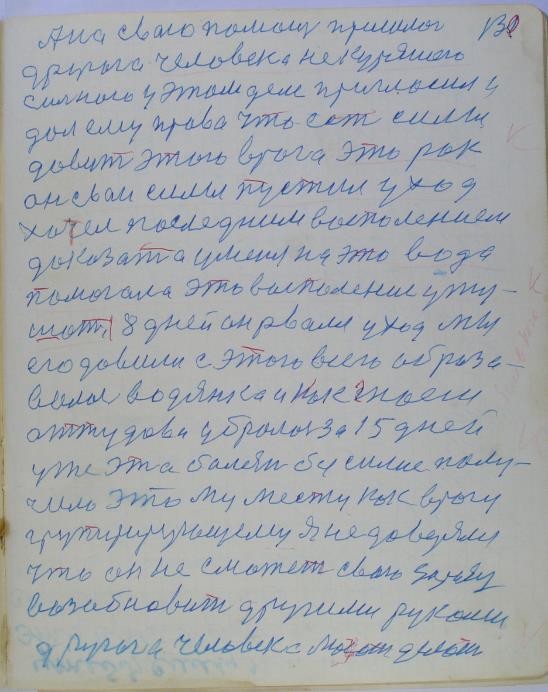 А на сваю помощ пришлос 132
другога человека некурящого
силного у этом деле пригласил и
дал ему права что сот силы
давит этого врога это рак
он сваи силы пустил у ход
хотел последним васполением
доказат а у меня на это вода
помогала это васполение уму-
шат, 8 дней он рвался у ход мы
его довили с этого всего образа-
валас водянка и как споели
оттудова убролос за 15 дней
уже эта балезн бу силие полу-
чило этому месту как врогу
групирующему я не доверяли
что он не сможет сваю
возабновит другими рукоми
другога человека